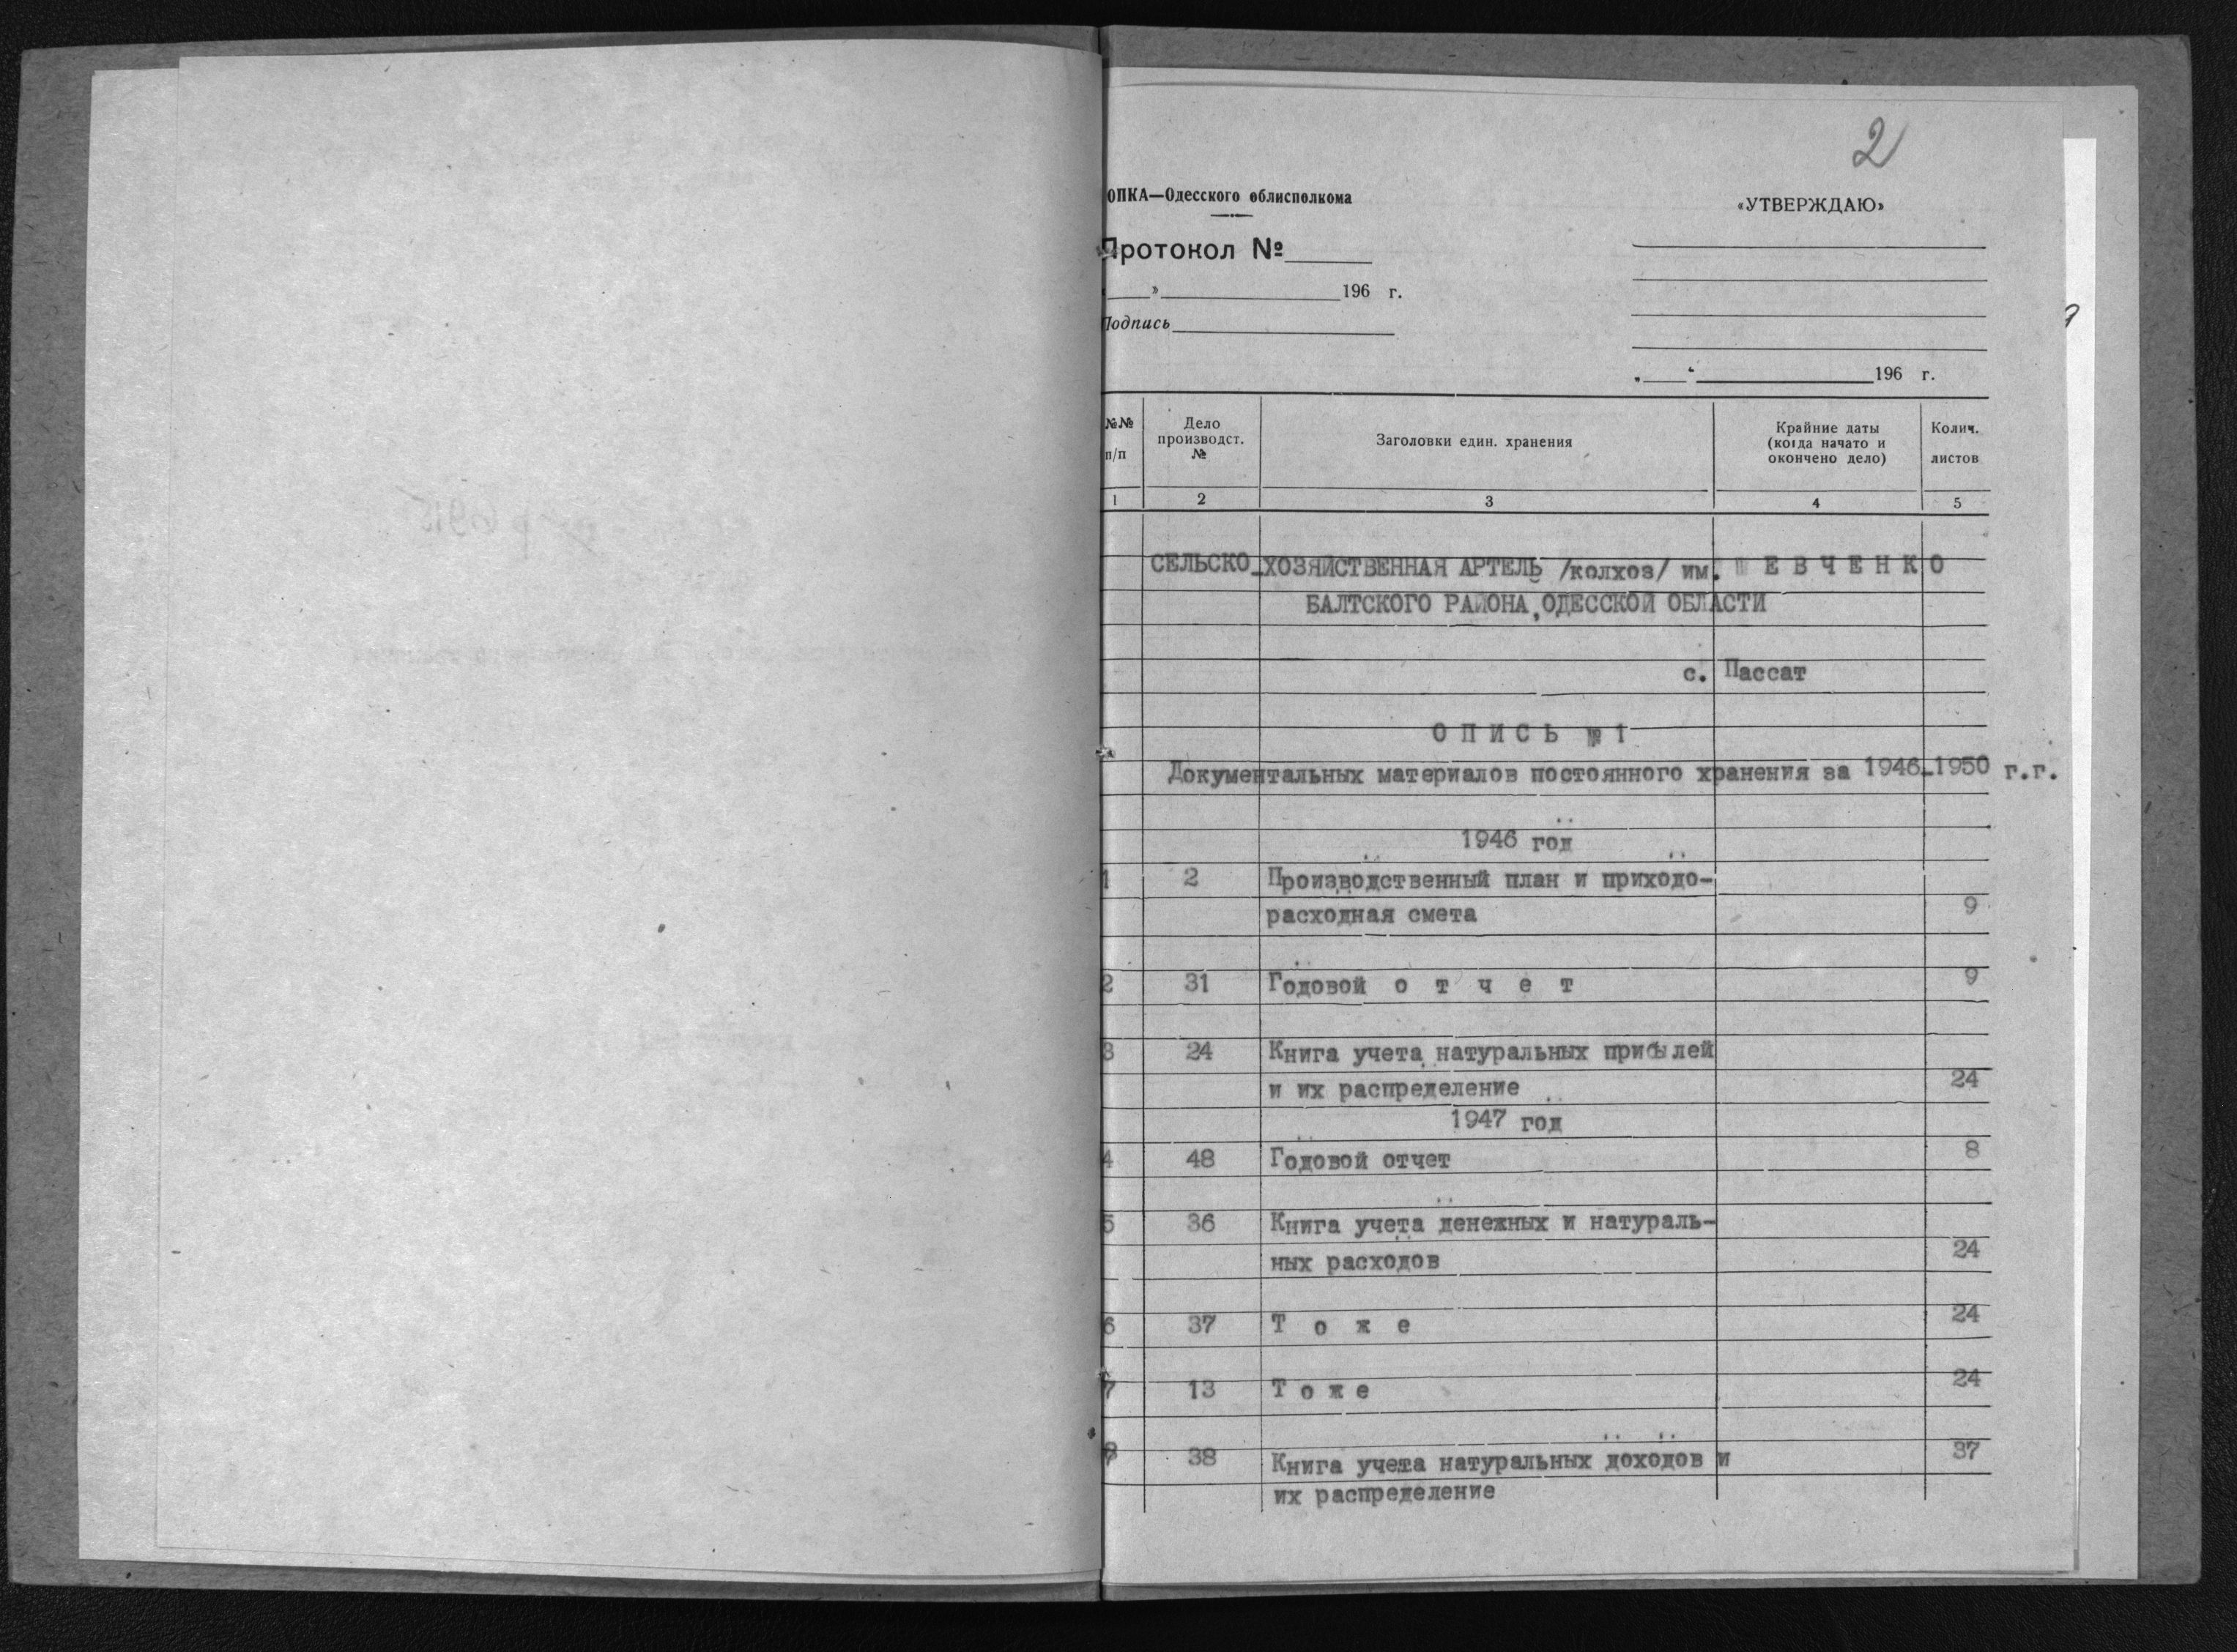 2
ОПКА—Одесского облисполкома
«УТВЕРЖДАЮ»
Протокол №
» 196 г.
Подпись
„ “ 196 г.
№№ п/п
Дело производст. №
Заголовки един. хранения
Крайние даты (когда начато и окончено дело)
Колич. листов
1 2 3 4 5
СЕЛЬСКО-ХОЗЯЙСТВЕННАЯ АРТЕЛЬ /колхоз/ им. Ш Е В Ч Е Н К О
БАЛТСКОГО РАЙОНА, ОДЕССКОЙ ОБЛАСТИ
с. Пассат
О П И С Ь № 1
Документальных материалов постоянного хранения за 1946-1950 г.г.
1946 год
1 2 Производственный план и приходо-
расходная смета 9
2 31 Годовой о т ч е т 9
3 24 Книга учета натуральных прибылей
и их распределение 24
1947 год
4 48 Годовой отчет 8
5 36 Книга учета денежных и натураль-
ных расходов 24
6 37 Т о ж е 24
7 13 Т о ж е 24
8 38 Книга учета натуральных доходов и 37
их распределение